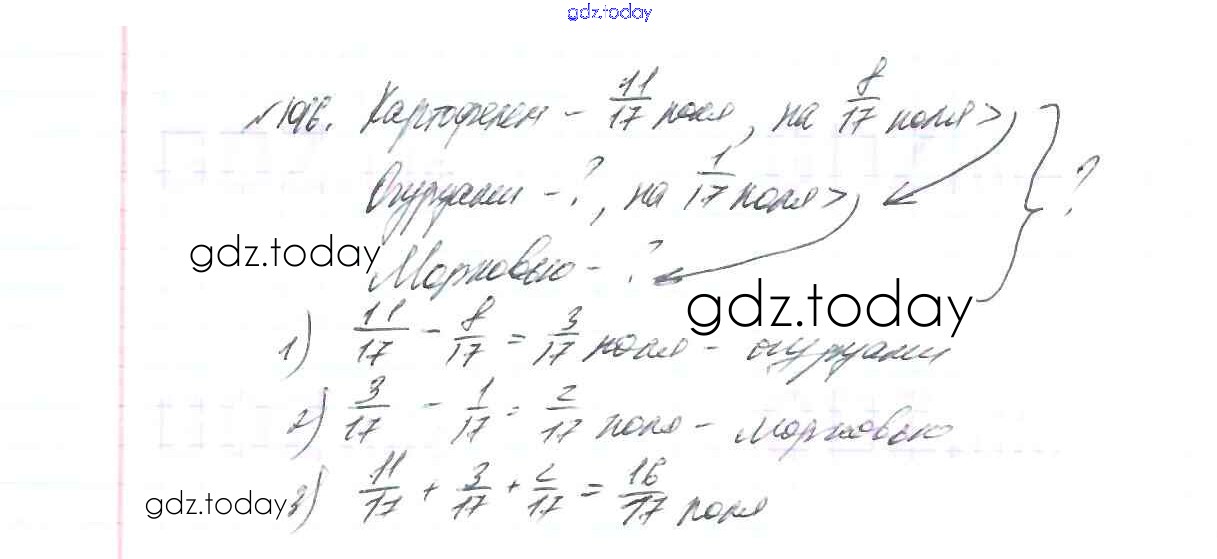 gdz.today
Картофелем - 11/17 поля, на 8/17 поля >
Огурцами - ?, на 1/17 поля > ?
gdz.today
Морковью - ?
gdz.today
1) 11/17 - 8/17 = 3/17 поля - огурцами
2) 3/17 - 1/17 = 2/17 поля - морковью
gdz.today
3) 11/17 + 3/17 + 2/17 = 16/17 поля